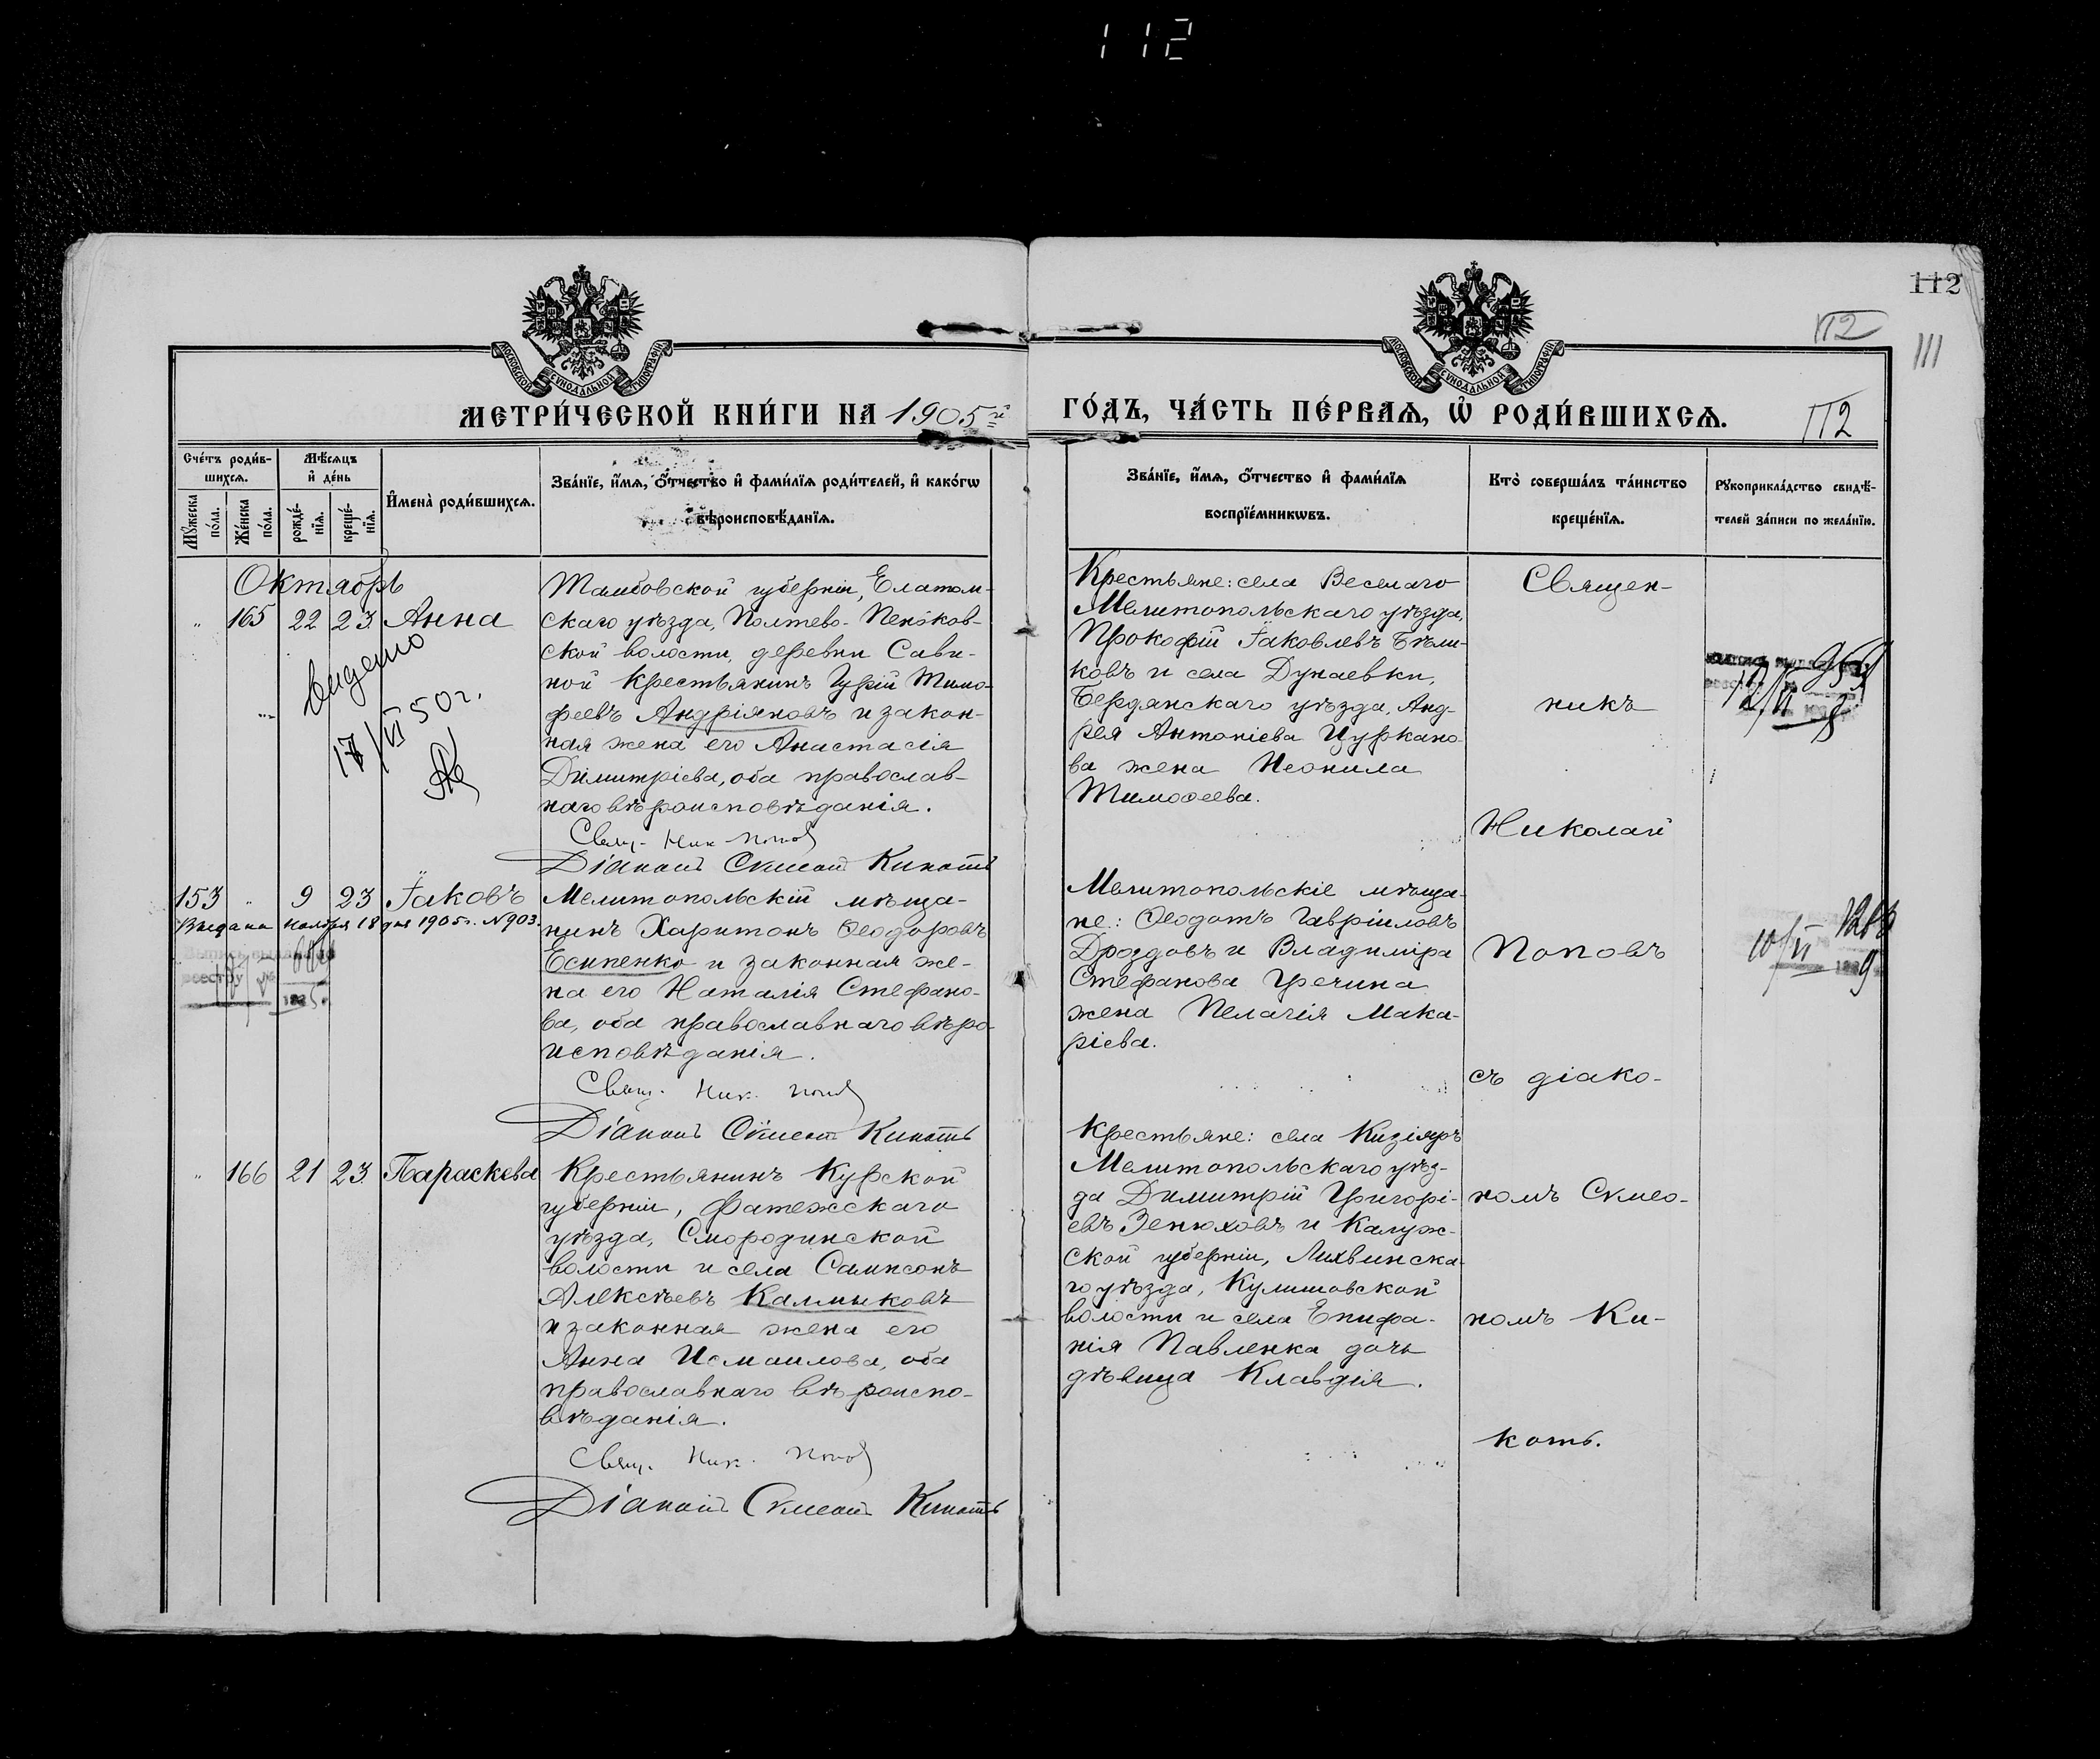 112
112
112
111
МОСКОВСКОЙ СѴНОДАЛЬНОЙ ТИПОГРАФІИ
МОСКОВСКОЙ СѴНОДАЛЬНОЙ ТИПОГРАФІИ
МЕТРИ́ЧЕСКОЙ КНИ́ГИ НА 1905й
ГО́ДЪ, ЧА́СТЬ ПЕ́РВАѦ, Ѡ҆ РОДИ́ВШИХСѦ.
112
Сче́тъ роди́в-
шихсѧ.
Мꙋжеска по́ла.
Же́нска по́ла.
Мѣ́сѧцъ
и҆ де́нь
рожде́-нїѧ.
креще́-нїѧ.
И҆мена̀ роди́вшихсѧ.
Зва́нїе, и҆́мѧ, ѻ҆́тчество и҆ фами́лїѧ роди́телей, и҆ како́гѡ
вѣроисповѣ́данїѧ.
Зва́нїе, и҆́мѧ, ѻ҆́тчество и҆ фами́лїѧ
воспрїе́мникѡвъ.
Кто̀ соверша́лъ та́инство
креще́нїѧ.
Рꙋкоприкла́дство свидѣ́-
телей за́писи по жела́нїю.
Октябрь
„ 165 22 23 Анна
Видено
17/VI 50 г.
Тамбовской губерніи, Елатом-
скаго уѣзда, Полтево-Пеньков-
ской волости, деревни Сави-
ной крестьянинъ Гурій Тимо-
феевъ Андріяновъ и закон-
ная жена его Анастасія
Димитріева, оба православ-
наго вѣроисповѣданія.
Свящ. Ник. Попов
Діаконъ Симеонъ Кикоть
Крестьяне: села Веселаго
Мелитопольскаго уѣзда,
Прокофій Іаковлевъ Бѣли-
ковъ и села Дунаевки,
Бердянскаго уѣзда, Анд-
рея Антоніева Цуркано-
ва жена Неонила
Тимоѳеева.
Священ-
никъ
Николай
Поповъ
съ діако-
номъ Симео-
номъ Ки-
коть.
153 „ 9 23 Іаковъ
Выдана ноября 18 дня 1905 г. N 903.
Мелитопольскій мѣща-
нинъ Харитонъ Ѳеодоровъ
Есипенко и законная же-
на его Наталія Стефано-
ва, оба православнаго вѣро-
исповѣданія.
Свящ. Ник. Попов
Діаконъ Симеонъ Кикоть
Мелитопольскіе мѣща-
не: Ѳеодотъ Гавріиловъ
Дроздовъ и Владиміра
Стефанова Гречина
жена Пелагія Мака-
ріева.
10/VI
„ 166 21 23 Параскева
Крестьянинъ Курской
губерніи, Фатежскаго
уѣзда, Смородинской
волости и села Сампсонъ
Алексѣевъ Калмыковъ
и законная жена его
Анна Исмаилова, оба
православнаго вѣроиспо-
вѣданія.
Свящ. Ник. Попов
Діаконъ Симеонъ Кикоть
Крестьяне: села Кизіяръ
Мелитопольскаго уѣз-
да Димитрій Григорі-
евъ Зенюховъ и Калуж-
ской губерніи, Лихвинска-
го уѣзда, Кулешовской
волости и села Епифа-
нія Павленка дочь
дѣвица Клавдія.